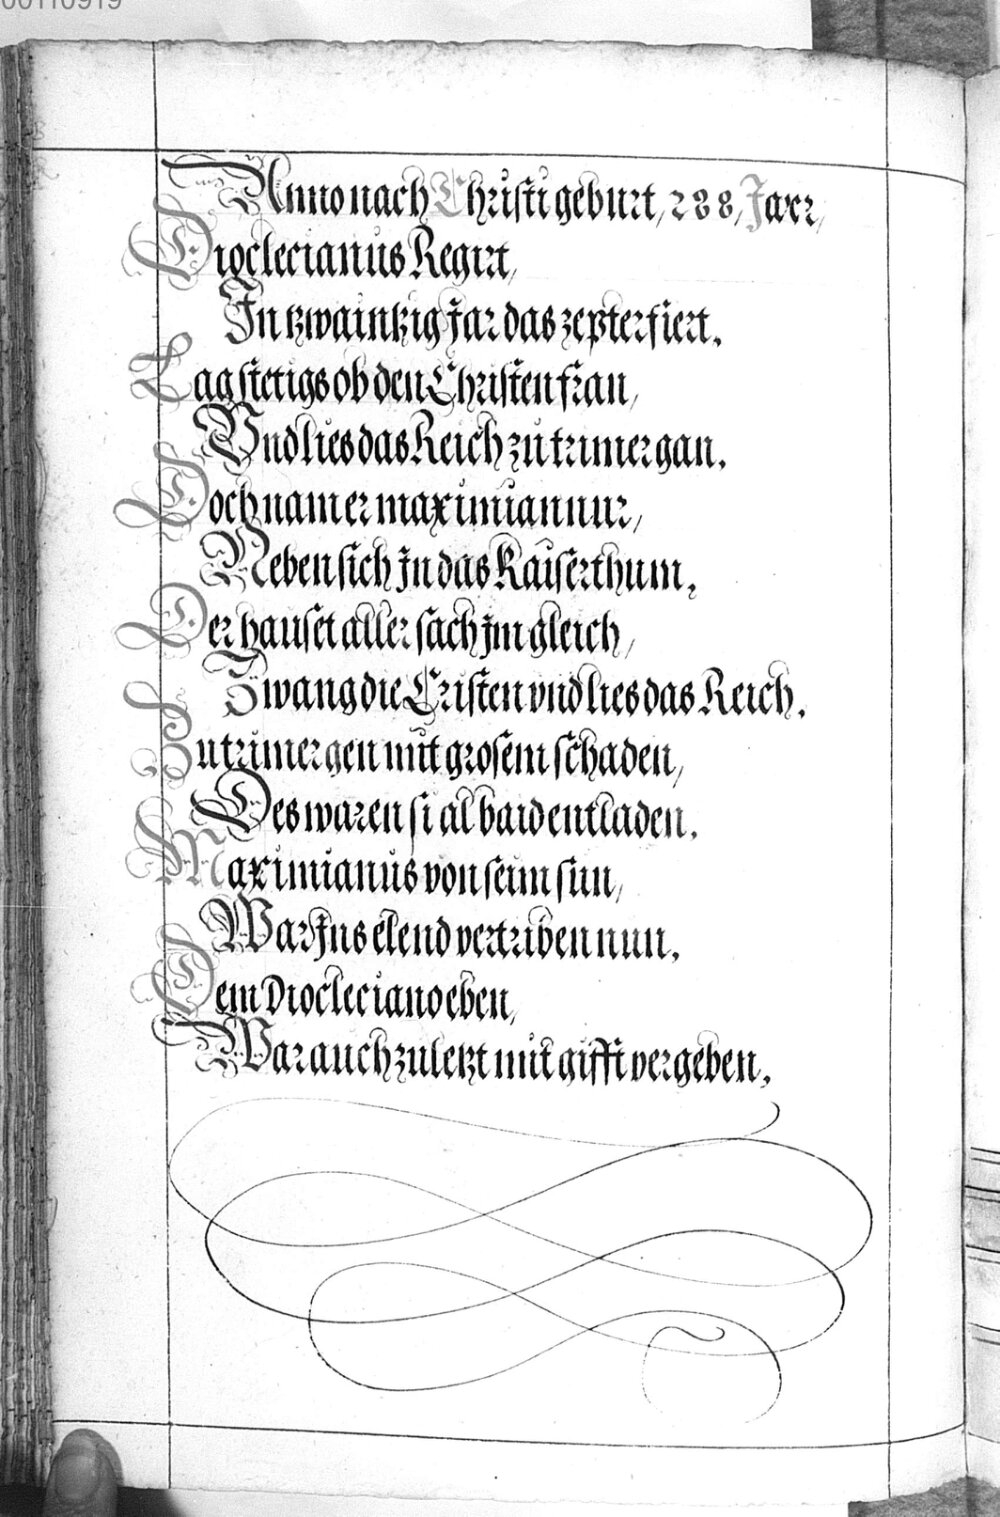 00110919
Anno nach Christi geburt, 288, Jaer,
Dioclecianus Regirt,
In tzwaintzig Jar das zepter fiert.
Lag stetigs ob den Christen fran,
Vnd lies das Reich zu trimer gan.
Doch nam er maximiannur,
Neben sich In das Kaiserthum.
Der hauset aller sach Im gleich,
Zwang die Cristen vnd lies das Reich.
Zu trimer gen mit grosem schaden,
Des waren si al baid entladen.
Maximianus von seim sun,
War Ins elend vertriben nun.
Dem Diocleciano eben,
War auch zuletzt mit gifft vergeben.